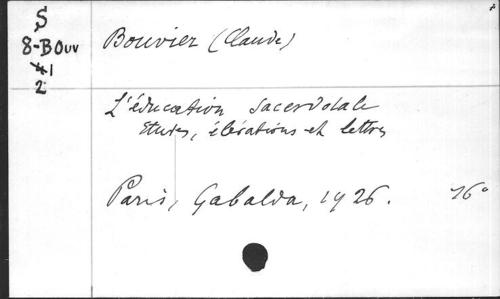 S
8-BOUV
41
2
Bouvier (Claude)
L'éducation sacerdotale
Etudes, élévations et lettres
Paris, Gabalda, 1926. 16°